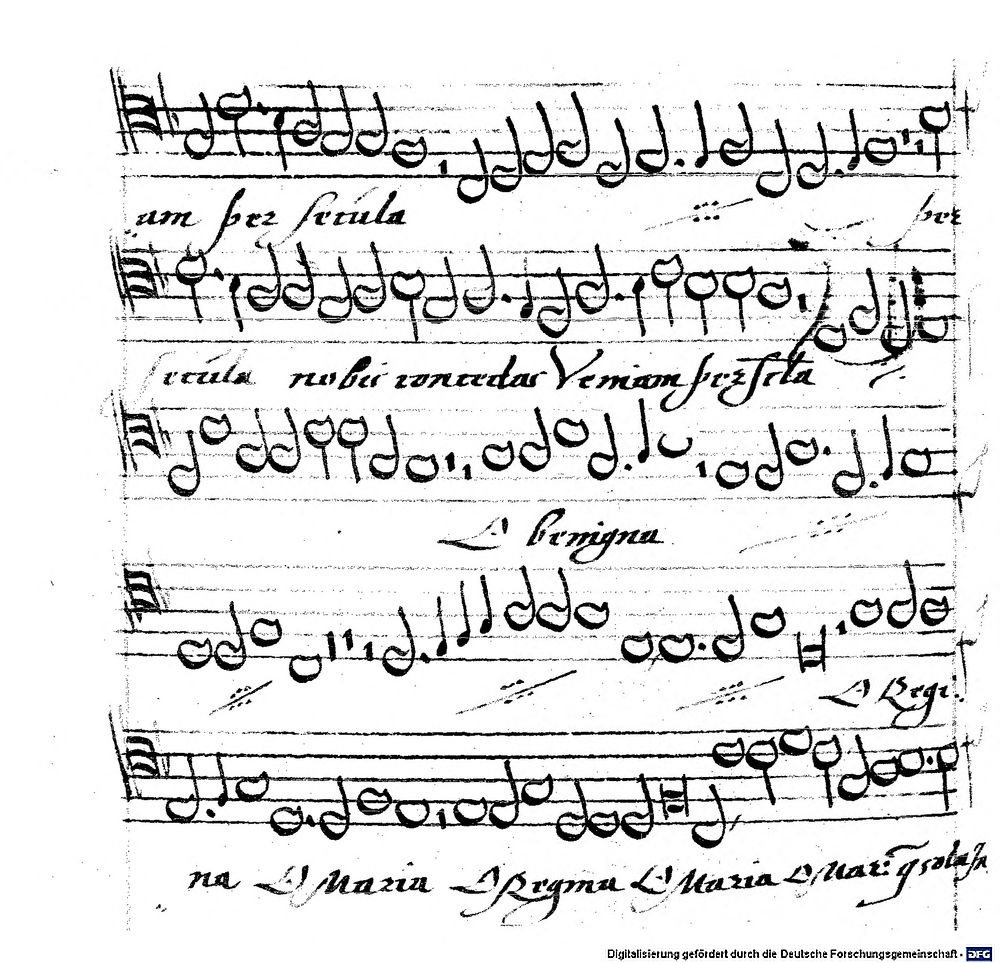 am per secula per
secula nobis concedas Veniam per scla
O benigna
O Regi
na O Maria O Regina O Maria O Mar: q sola
Digitalisierung gefördert durch die Deutsche Forschungsgemeinschaft - DFG